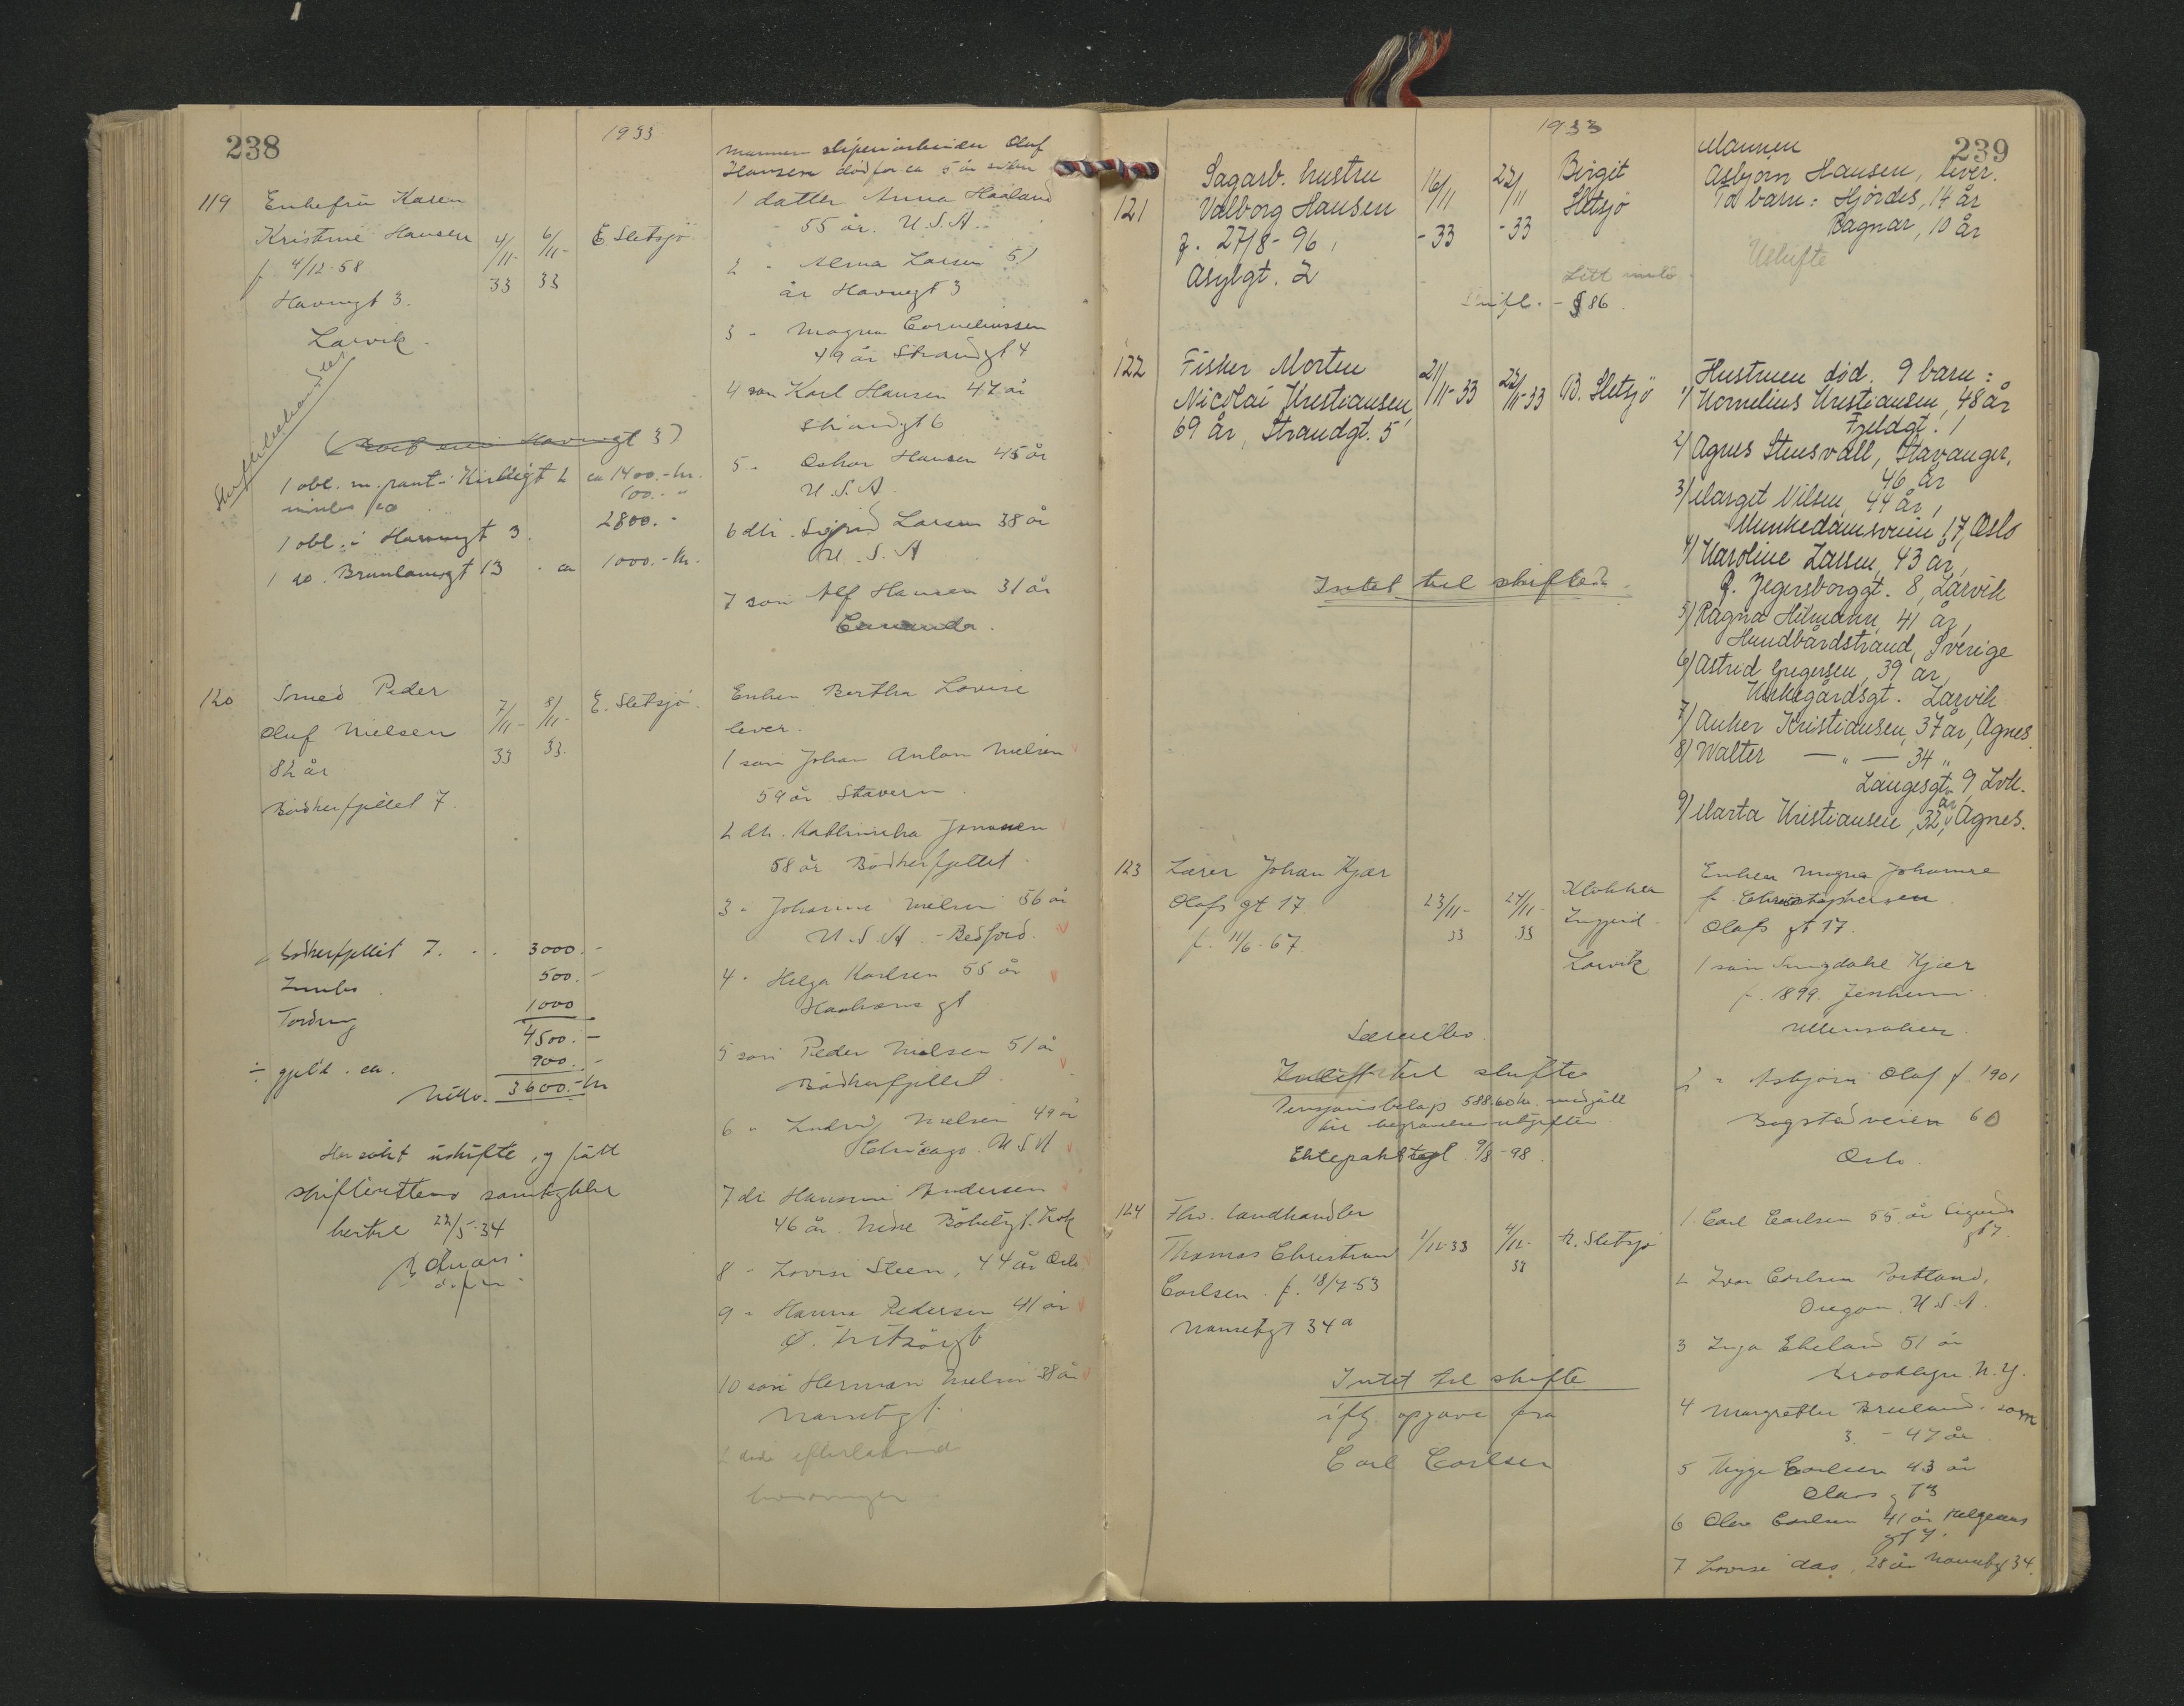 238
1933
119
Enkefru Karen
Kristine Hansen
f. 4/12-58
Havnegt 3.
Larvik.
4/11-
33
6/11-
33
E. Sletsjö
Mannen sliperiarbeider Oluf
Hansen död for ca 5 år siden
1 datter Anna Haaland
55 år. U.S.A.
2 " Alma Larsen 51
år Havnegt 3
3 - Magna Corneliussen
49 år Strandgt 4
4 søn Karl Hansen 47 år
Strandgt 6
5 - Oskar Hansen 45 år
U.S.A.
6 dtr. Sigrid Larsen 38 år
U.S.A
7 søn Alf Hansen 31 år
Canada.
Havnegt 3)
1 obl. m. pant i Kirkegt 2 ca 1400.- kr.
100.- "
1 obl. i Havnegt 3. 2800.-
1 do. Brunlanesgt 13 - ca 1000.- kr.
120
Smed Peder
Oluf Nielsen
82 år
Bödkerfjellet 7.
7/11-
33
8/11-
33.
E. Sletsjö.
Enken Bertha Lovise
lever.
1 søn Johan Anton Nielsen
59 år Stavern.
2 dtr. Kathinka Jonassen
58 år Bödkerfjellet.
3 - Johanne Nielsen 56 år
U.S.A. - Bedford.
4 - Helga Karlsen 55 år
Haakons gt
5 søn Peder Nielsen 51 år
Bödkerfjellet.
6 " Ludvig Nielsen 49 år
Chicago. U.S.A
7 dr Hansine Andersen
46 år. Nedre Bökeligt. Lvk
8 - Lovise Steen, 44 år Oslo
9 - Hanna Pedersen 41 år
10 søn Herman Nielsen 38 år
Nansetgt.
2 døde efterlatende
Bödkerfjellet 7. . . 3000.-
Innbo 500.-
Fordring 1000
4500.-
÷ gjeld. ca. 900.-
Netto. 3600.- kr
Har søkt uskifte, og fått
skifterettens samtykke
hertil 22/5-34
239
1933
121
Sagarb. hustru
Valborg Hansen
f. 27/8-96,
Asylgt. 2
16/11
-33
23/11
-33
Birgit
Sletsjö
Mannen
Asbjørn Hansen, lever.
To barn: Hjørdis, 14 år
Ragnar, 10 år
Uskifte
Litt innbo
Skiftl. - § 86.
122
Fisker Morten
Nicolai Kristiansen,
69 år, Strandgt. 5
21/11-33
23/11-33
B. Sletsjö
Hustruen död. 9 barn:
1/ Kornelius Kristiansen, 48 år
Fjeldgt. 1
2/ Agnes Stensvall, Stavanger,
46 år
3/ Marget Nilsen, 44 år,
Munkedamsveien 17, Oslo
4/ Karoline Larsen, 43 år,
F. Jegersborggt. 8, Larvik
5/ Ragna Hilmann, 41 år,
Hundbårdstrand, Sverige
6/ Astrid Gregersen, 39 år,
Kirkegårdsgt. Larvik
7/ Anker Kristiansen, 37 år, Agnes.
8/ Walter — " — 34 "
Langesgt. 9 Lvk.
9/ Marta Kristiansen, 32 år, Agnes.
Intet til skifte.
123
Lærer Johan Kjær
Olafs gt 17
f. 11/6-67.
23/11-
33
24/11-
33
Klokker
Larvik
Enken Magna Johanne
f. Christophersen
Olafs gt 17.
1 søn Kjær
f. 1899. Jessheim
Ullensaker.
2 " Asbjørn Olaf f. 1901
Bogstadveien 60
Oslo.
Særeibo.
Intet til skifte
Pensjonsbeløp 588,60 kr. medgått
til begravelsesutgifter
Ektepakt tgl. 9/8-98.
124
Fhv. landhandler
Thomas Christian
Carlsen. f. 18/7-53
Nansetgt 34 a
1/12-33
4/12-
33
E. Sletsjö
1. Carl Carlsen 55 år Sigurds
gt 7
2 Ivar Carlsen Portland,
Oregon. U.S.A.
3 Inga Ekeland 51 år
Brooklyn. N.Y.
4 Margrethe Breiland. som
3. - 47 år
5 Trygve Carlsen 43 år
Olavs gt 3
6 Olav Carlsen 41 år Helgesens
gt 4.
7 Lovise das. 28 år Nansetgt 34.
Intet til skifte
iflg. opgave fra
Carl Carlsen